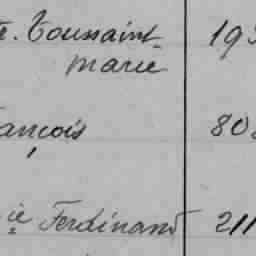 Toussaint 19
Marie
ançois 80
ie Ferdinand 211